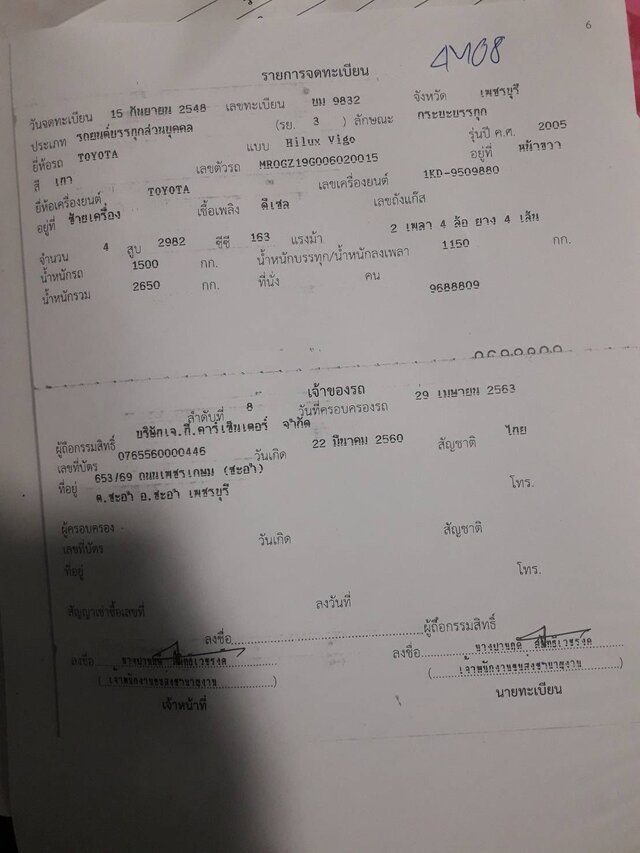 6
4M08
รายการจดทะเบียน
วันจดทะเบียน 15 กันยายน 2548 เลขทะเบียน ยม 9832 จังหวัด เพชรบุรี
ประเภท รถยนต์บรรทุกส่วนบุคคล (รย. 3 ) ลักษณะ กระบะบรรทุก
ยี่ห้อรถ TOYOTA แบบ Hilux Vigo รุ่นปี ค.ศ. 2005
สี เทา เลขตัวรถ MR0GZ19G006020015 อยู่ที่ หน้าขวา
ยี่ห้อเครื่องยนต์ TOYOTA เลขเครื่องยนต์ 1KD-9509880
อยู่ที่ ซ้ายเครื่อง เชื้อเพลิง ดีเซล เลขถังแก๊ส
จำนวน 4 สูบ 2982 ซีซี 163 แรงม้า 2 เพลา 4 ล้อ ยาง 4 เส้น
น้ำหนักรถ 1500 กก. น้ำหนักบรรทุก/น้ำหนักลงเพลา 1150 กก.
น้ำหนักรวม 2650 กก. ที่นั่ง คน 9688809
เจ้าของรถ
ลำดับที่ 8 วันที่ครอบครองรถ 29 เมษายน 2563
ผู้ถือกรรมสิทธิ์ บริษัทเจ.กี.คาร์เซ็นเตอร์ จำกัด
เลขที่บัตร 0765560000446 วันเกิด 22 มีนาคม 2560 สัญชาติ ไทย
ที่อยู่ 653/69 ถนนเพชรเกษม (ชะอำ) โทร.
ต.ชะอำ อ.ชะอำ เพชรบุรี
ผู้ครอบครอง
เลขที่บัตร วันเกิด สัญชาติ
ที่อยู่ โทร.
สัญญาเช่าซื้อเลขที่ ลงวันที่
ลงชื่อ ผู้ถือกรรมสิทธิ์
ลงชื่อ ลงชื่อ
(เจ้าพนักงานขนส่งชำนาญงาน) (เจ้าพนักงานขนส่งชำนาญงาน)
เจ้าหน้าที่ นายทะเบียน